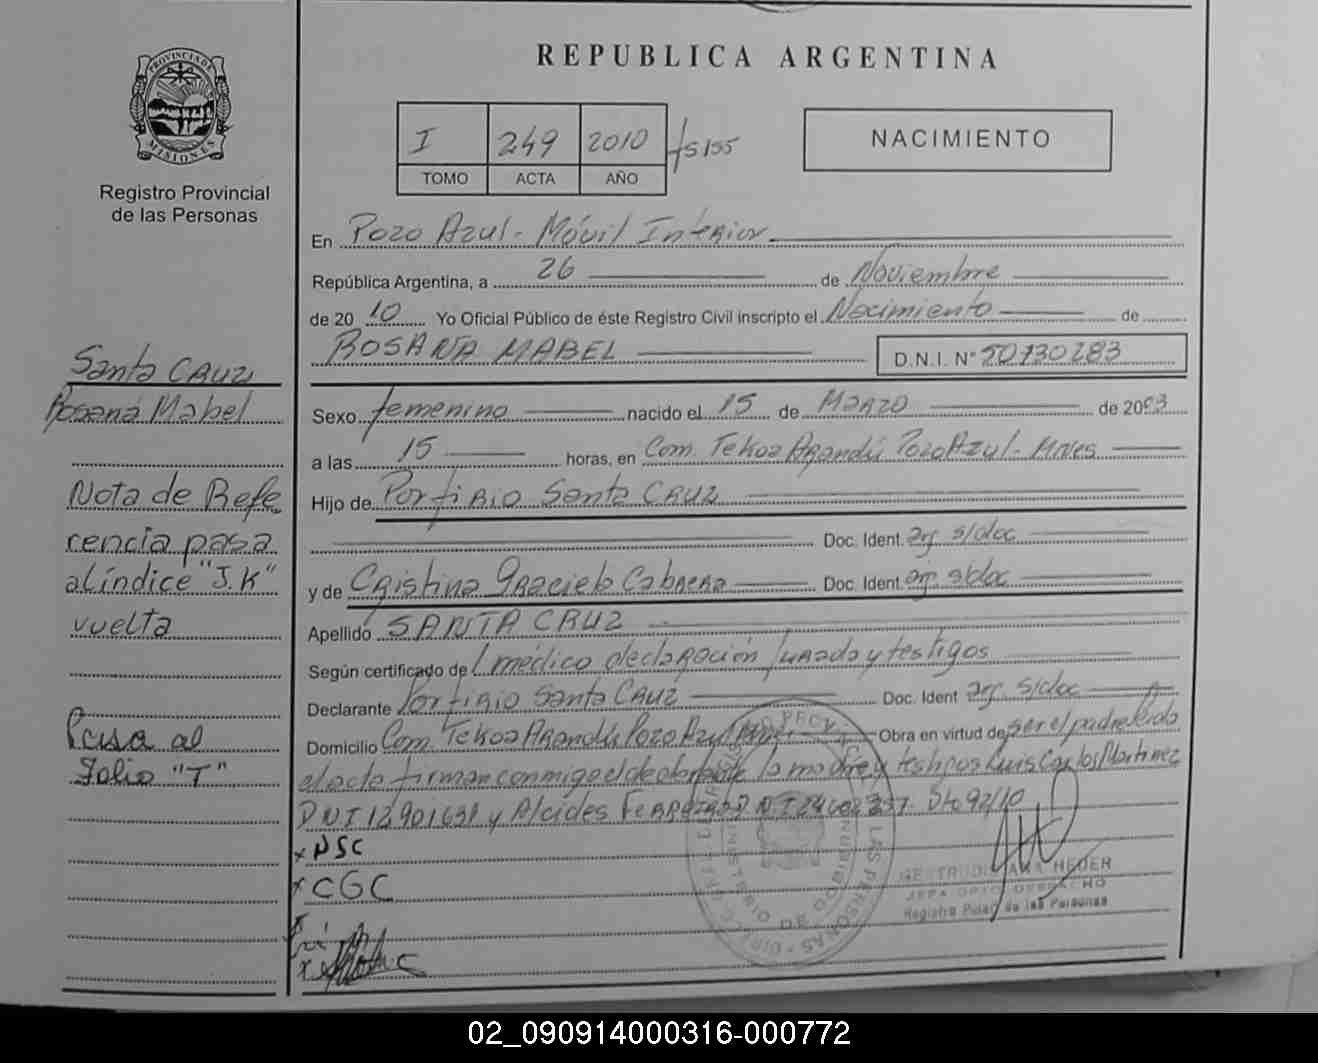 REPUBLICA ARGENTINA
PROVINCIA DE MISIONES
Registro Provincial
de las Personas
I 249 2010 fs 155
TOMO ACTA AÑO
NACIMIENTO
En Pozo Azul - Móvil Interior
República Argentina, a 26 de Noviembre
de 2010 Yo Oficial Público de éste Registro Civil inscripto el Nacimiento de
ROSANA MABEL D.N.I. N° 50730283
Sexo femenino nacido el 15 de MARZO de 2003
a las 15 horas, en Com. Tekoa Arandú Pozo Azul - Mnes
Hijo de Porfirio Santa CRUZ
Doc. Ident. arg s/doc
y de Cristina Graciela Cabrera Doc. Ident. arg s/doc
Apellido SANTA CRUZ
Según certificado de médico declaración jurada y testigos
Declarante Porfirio Santa CRUZ Doc. Ident arg. s/doc
Domicilio Com. Tekoa Arandú Pozo Azul Obra en virtud de ser el padre Leida
el acta firman conmigo el declarante la madre y testigos Luis Carlos Martinez
DNI 12901691 y Alcides Ferreira DNI Dto 92/10
x PSC
x CGC
x
HEDER
Registro Prov. de las Personas
Santa CRUZ
Rosana Mabel
Nota de Refe
rencia pasa
al índice "J.K"
vuelta
Pasa al
Folio "T"
02_090914000316-000772